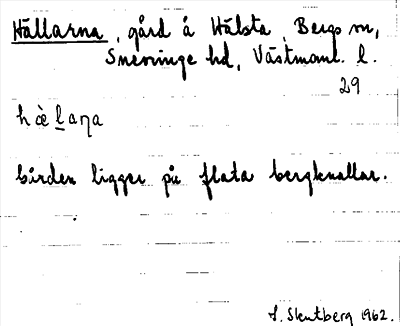 Hällarna, gård å Hälsta, Bergs sn,
Snevringe hd, Västmanl. l.
29
hæ̀ḻaŋa
Gården ligger på flata bergknallar.
S. Skutberg 1962.